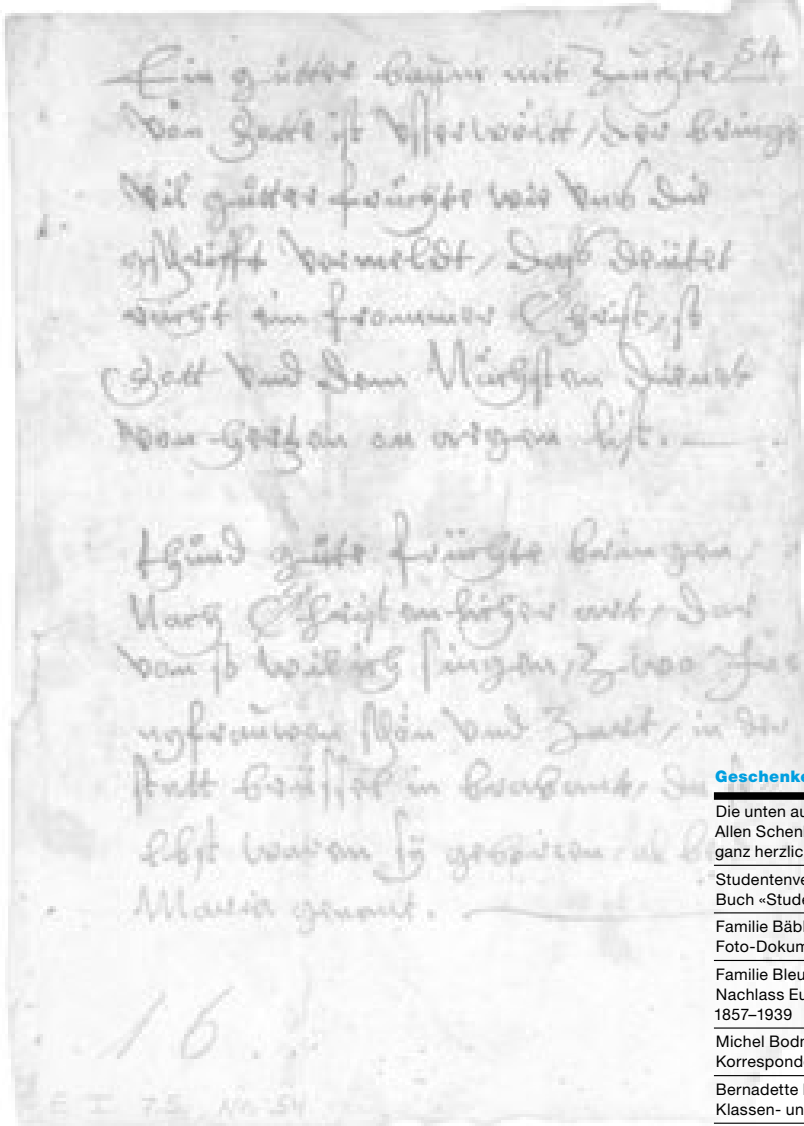 54
Ein gutter baum mit Zuchte
Von Gotte ist Vsserwelt, der bringt
Vil gutter fruchte wie Vns die
gschrifft Vermeldt, Das deutet
ein frommer Christ, so
Gott Vnd dem Nächsten dienet
Von Hertzen an argen list.
gute früchte bringen,
Nach art, Dar
Von so wil ich singen, Zwoo Jun
ngfrauwen schön Vnd Zart, in der
statt brüssel in brabant, Da
waren sy geboren
Maria genant.
16
E I 7.5, Nr. 54
Geschenke
Die unten au
Allen Schen
ganz herzlic
Studentenve
Buch «Stude
Familie Bäbl
Foto-Dokum
Familie Bleu
Nachlass Eu
1857–1939
Michel Bodr
Korresponde
Bernadette
Klassen- un